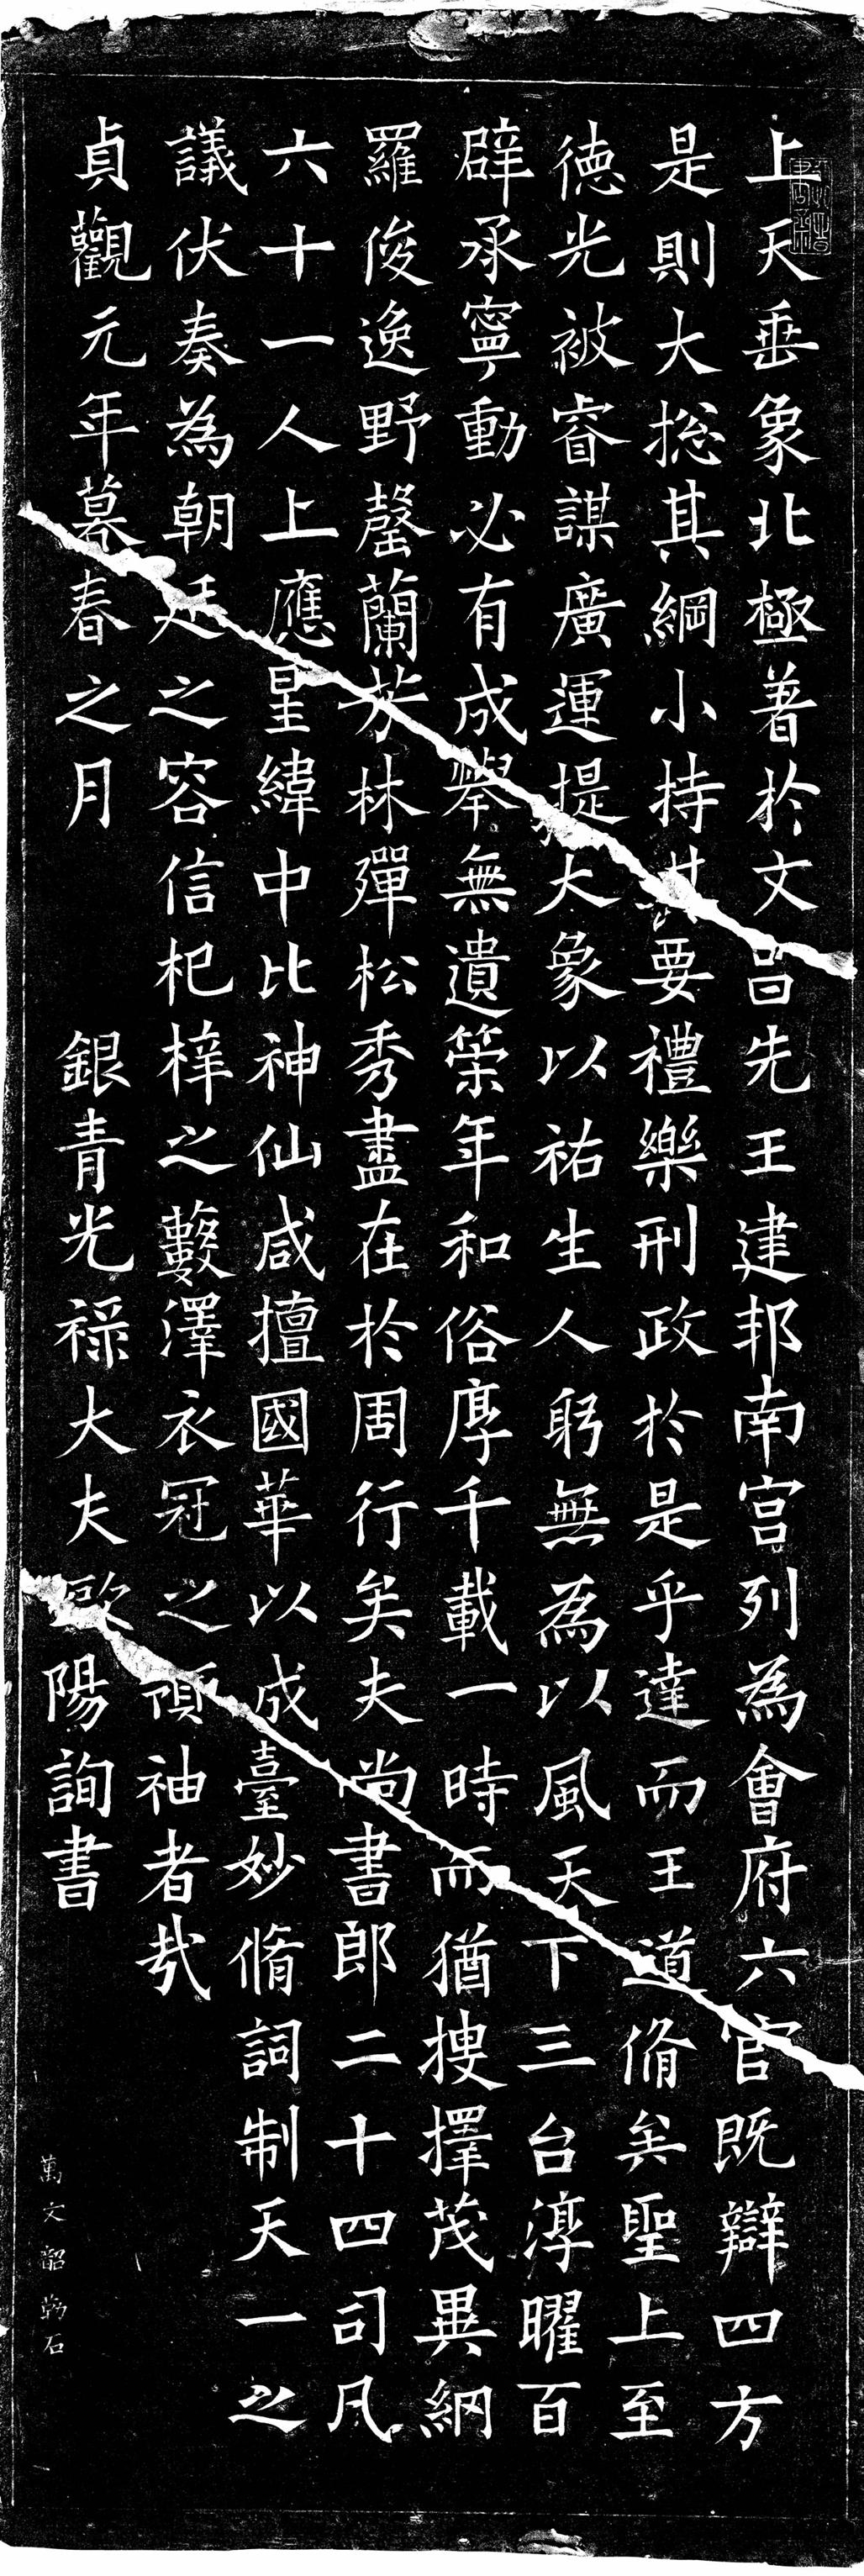 上天垂象北極著於文昌先王建邦南宮列為會府六官既辯四方
是則大揔其綱小持其要禮樂刑政於是乎達而王道脩矣聖上至
德光被睿謀廣運提大象以祐生人躬無為以風天下三台淳曜百
辟承寧動必有成舉無遺策年和俗厚千載一時而猶搜擇茂異網
羅俊逸野罄蘭芬林殫松秀盡在於周行矣夫尚書郎二十四司凡
六十一人上應星緯中比神仙咸擅國華以成臺妙脩詞制天一之
議伏奏為朝廷之容信杞梓之藪澤衣冠之領袖者哉
貞觀元年暮春之月 銀青光祿大夫歐陽詢書
萬文韶勒石